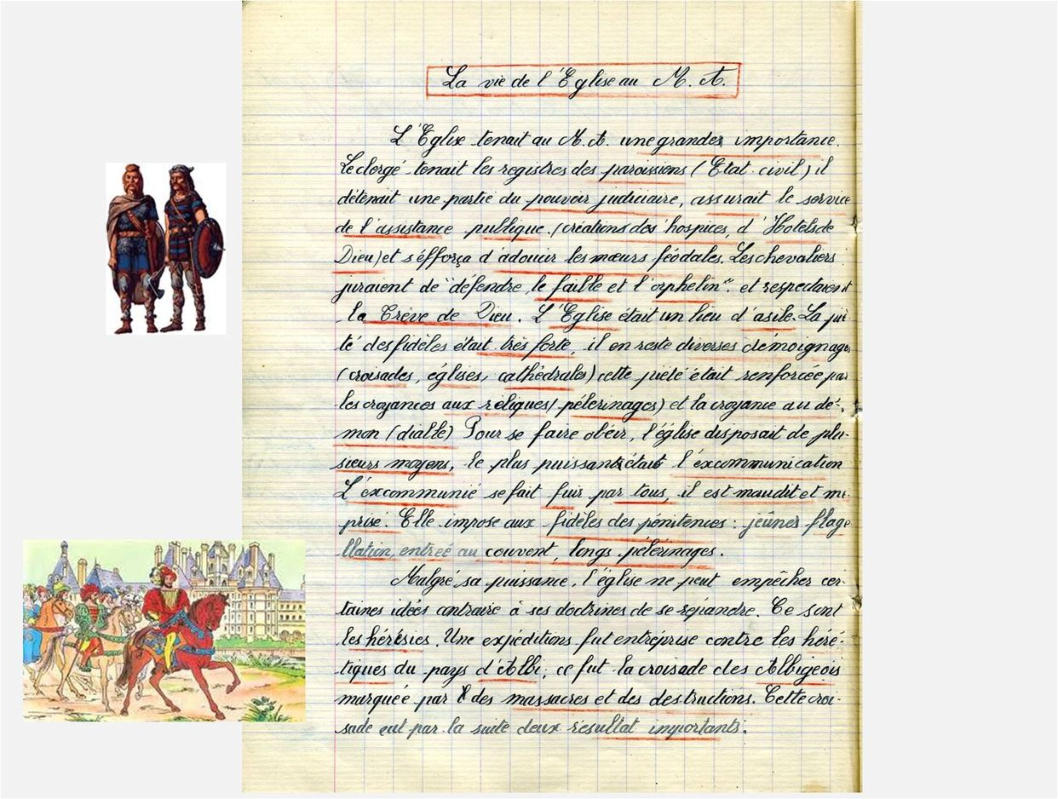 La vie de l'Eglise au M. A.
L'Eglise tenait au M. A. une grandes importance.
Le clergé tenait les registres des paroissions (Etat civil) il
détenait une partie du pouvoir judiciaire, assurait le service
de l'assistance publique. (créations des hospices, d'Hotels de
Dieu) et s'éfforça d'adoucir les mœurs féodales. Les chevaliers
juraient de "défendre le faille et l'orphelin" et respectaient
la Trève de Dieu. L'Eglise était un lieu d'asile. La pié
té des fidèles était très forte, il en reste diverses démoignages
(croisades, églises, cathédrales) cette piété était renforcée par
les croyances aux réliques (pélerinages) et la croyance au dé-
mon (diable) Pour se faire obéir, l'église disposait de plu-
sieurs moyens, le plus puissant était l'éxcommunication
L'éxcommunié se fait fuir par tous, il est maudit et mé
prisé. Elle impose aux fidèles des pénitences : jeûner flage
llation, entreé au couvent, longs pélérinages.
Malgré sa puissance, l'église ne peut empêcher cer-
taines idées contraire à ses doctrines de se répandre. Ce sont
les hérésies. Une expéditions fut entreprise contre les héré-
tiques du pays d'Albi, ce fut la croisade des Albigeois
marquée par des massacres et des destructions. Cette croi-
sade eut par la suite deux résultat importants.